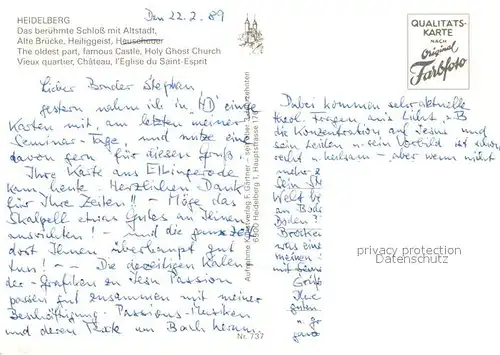 HEIDELBERG
Das berühmte Schloß mit Altstadt,
Alte Brücke, Heiliggeist, Heuscheuer
The oldest part, famous Castle, Holy Ghost Church
Vieux quartier, Château, l'Eglise du Saint-Esprit
Den 22.2.89
QUALITÄTS-
KARTE
NACH
Original
Farbfoto
Lieber Bruder Stephan
gestern nahm ich in "HD" einige
Karten mit, am letzten meiner
Seminar-Tage, und nutze eine
davon gern für diesen Gruß.
Ihre Karte aus Elbingerode
kam heute. Herzlichen Dank
für Ihre Zeilen!! - Möge das
Skalpell etwas Gutes an Ihnen
ausrichten! - und die ganze Zeit
dort Ihnen überhaupt gut
tun! - Die derzeitigen Kalen
der-Grafiken zu Jesu Passion
passen gut zusammen mit meiner
Beschäftigung: Passions-Musiken
und deren Texte um Bach herum.
Aufnahme Kunstverlag F. Gärtner
6900 Heidelberg 1, Hauptstrasse
Nr. 737
Dabei kommen sehr aktuelle
theol. Fragen ans Licht, z.B
die Konzentration auf Jesus und
sein Leiden u. sein Vorbild ist schon
recht u. heilsam - aber wenn nicht
mehr
Welt
an Bode
Boden?
was eine
meinen
Grüße
Ihre
guten
u.
ganz
privacy protection
MA-SHOPS.DE